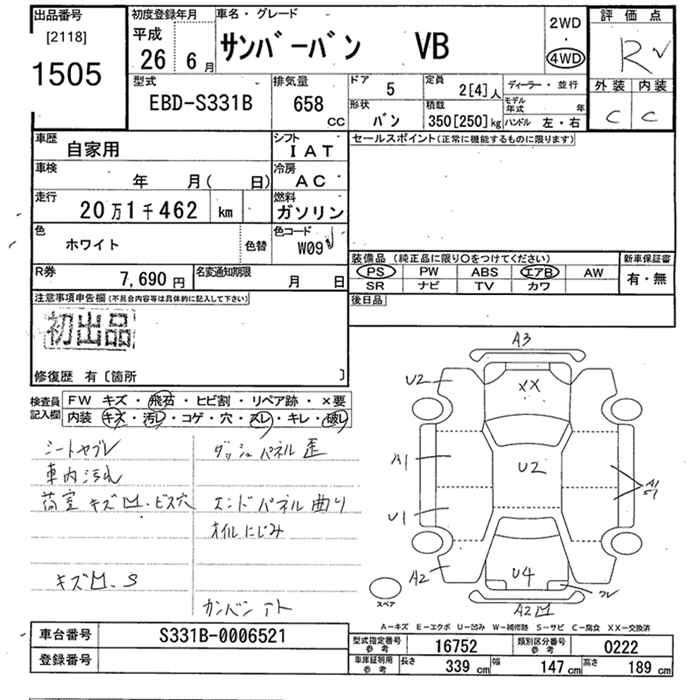 出品番号
[2118]
1505
初度登録年月
平成
26 6月
車名・グレード
サンバーバン VB
2WD
・
4WD
評価点
R
外装 内装
C C
型式
EBD-S331B
排気量
658
CC
ドア
5
定員
2[4]人
ディーラー・並行
形状
バン
積載
350[250]kg
モデル年式 年
ハンドル 左・右
車歴
自家用
シフト
IAT
セールスポイント(正常に機能するものに限ります)
車検
年 月( 日)
冷房
AC
走行
20万1千462 km
燃料
ガソリン
色
ホワイト
色替
色コード
W09
R券
7,690円
名変通知期限
月 日
装備品 (純正品に限り○をつけてください)
PS PW ABS エアB AW
SR ナビ TV カワ
新車保証書
有・無
後日品
注意事項申告欄(不具合内容等は具体的に記入して下さい)
初出品
修復歴 有〔箇所 〕
検査員記入欄
FW キズ・飛石・ヒビ割・リペア跡・×要
内装 キズ・汚レ・コゲ・穴・スレ・キレ・破レ
シートヤブレ
車内汚れ
荷室 キズ凹.ビス穴
キズ凹.S
ダッシュパネル歪
エンドパネル曲り
オイルにじみ
カンバンアト
A3
U2
XX
A1
U2
U1
A2
U4
A2凹
スペア
A-キズ E-エクボ U-凹み W-補修跡 S-サビ C-腐食 XX-交換済
車台番号
S331B-0006521
登録番号
型式指定番号
参考
16752
類別区分番号
参考
0222
車庫証明用
参考
長さ 339cm 幅 147cm 高さ 189cm